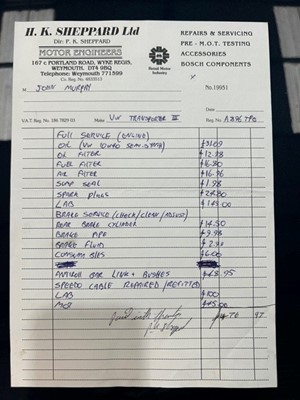 H. K. SHEPPARD Ltd
Dir: P. K. SHEPPARD
MOTOR ENGINEERS
167 c PORTLAND ROAD, WYKE REGIS,
WEYMOUTH. DT4 9BQ
Telephone: Weymouth 771599
Retail Motor
Industry
REPAIRS & SERVICING
PRE - M.O.T. TESTING
ACCESSORIES
BOSCH COMPONENTS
M JOHN MURPHY
No. 19951
Date
V.A.T. Reg. No. 186 7929 03
Make VW TRANSPORTER
Reg. No.
FULL SERVICE (ENGINE)
OIL (VW 10W40 SEMI-SYNTH)
OIL FILTER £12.98
FUEL FILTER
AIR FILTER £16.96
SUMP SEAL £1.98
SPARK PLUGS
LAB
BRAKE SERVICE (CHECK/CLEAN/ADJUST)
REAR BRAKE CYLINDER £14.50
BRAKE PIPE £9.98
BRAKE FLUID
CONSUMABLES £6.00
ANTIROLL BAR LINK + BUSHES
SPEEDO CABLE REPAIRED/REFITTED
LAB £100
MOT £45.00